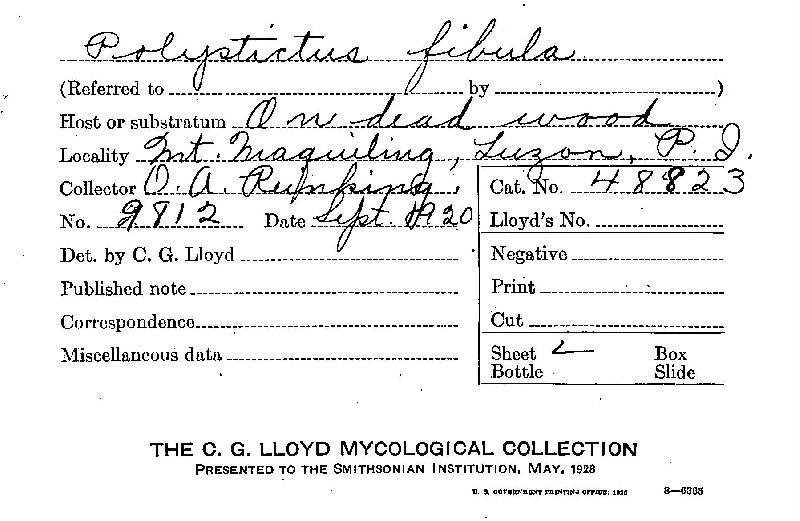 Polystictus fibula
(Referred to by )
Host or substratum On dead wood
Locality Mt. Maquiling, Luzon, P. I.
Collector O. A. Reinking. Cat. No. 48823
No. 9812 Date Sept. 1920 Lloyd's No.
Det. by C. G. Lloyd Negative
Published note Print
Correspondence Cut
Miscellaneous data Sheet Box
Bottle Slide
THE C. G. LLOYD MYCOLOGICAL COLLECTION
PRESENTED TO THE SMITHSONIAN INSTITUTION, MAY, 1928
U. S. GOVERNMENT PRINTING OFFICE: 8—6365